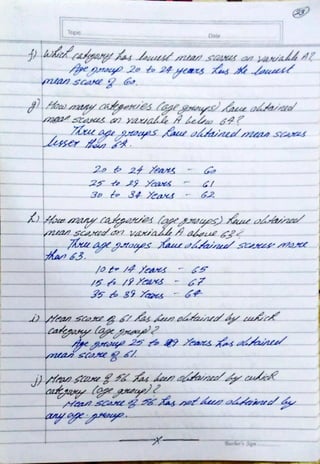 231
Topic
Date
f) Which category has lowest mean scores on variable A?
Age group 20 to 24 years has the lowest
mean score of 60.
g) How many categories (age groups) have obtained
mean scores on variable A below 64?
Three age groups have obtained mean scores
lesser than 64.
20 to 24 Years - 60
25 to 29 Years - 61
30 to 34 Years - 62
h) How many categories (age groups) have obtained
mean scored on variable A above 63?
Three age groups have obtained scores more
than 63.
10 to 14 Years - 65
15 to 19 Years - 67
35 to 39 Years - 64
i) Mean score of 61 has been obtained by which
category (age group)?
Age group 25 to 29 Years has obtained
mean score of 61.
j) Mean score of 56 has been obtained by which
category (age group)?
Mean score of 56 has not been obtained by
any age group.
x
Teacher's Sign